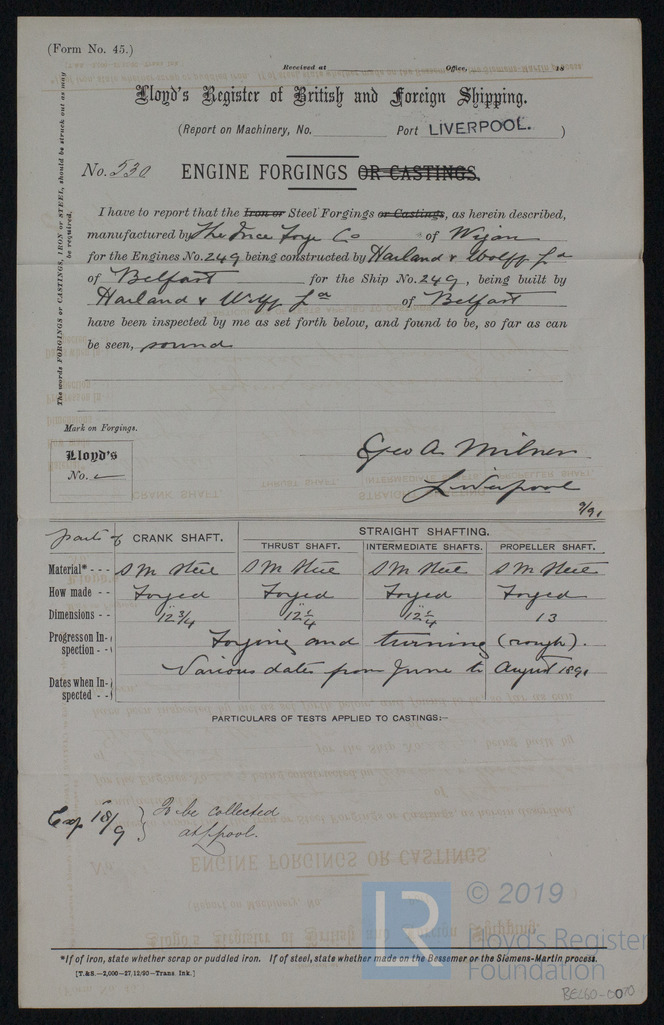 (Form No. 45.)
Received at Office, 18
Lloyd's Register of British and Foreign Shipping.
(Report on Machinery, No. Port LIVERPOOL. )
No. 530 ENGINE FORGINGS OR CASTINGS.
The words FORGINGS or CASTINGS, IRON or STEEL, should be struck out as may be required.
I have to report that the Iron or Steel Forgings or Castings, as herein described,
manufactured by The Ince Forge Co of Wigan
for the Engines No. 249 being constructed by Harland & Wolff Ld
of Belfast for the Ship No. 249, being built by
Harland & Wolff Ld of Belfast
have been inspected by me as set forth below, and found to be, so far as can
be seen, sound
Mark on Forgings.
Lloyd's
No.
Geo A. Milner
Liverpool
9/91
parts of CRANK SHAFT. STRAIGHT SHAFTING.
THRUST SHAFT. INTERMEDIATE SHAFTS. PROPELLER SHAFT.
Material* - - - S M Steel S M Steel S M Steel S M Steel
How made - - Forged Forged Forged Forged
Dimensions - - 12 3/4 12 1/4 12 1/4 13
Progress on In-
spection - - Forging and turning (rough).
Dates when In-
spected - - Various dates from June to August 1891
PARTICULARS OF TESTS APPLIED TO CASTINGS:—
18/9 To be collected
at Lpool.
*If of iron, state whether scrap or puddled iron. If of steel, state whether made on the Bessemer or the Siemens-Martin process.
[T.&S.—2,000—27/12/90—Trans. Ink.]
LR © 2019
Lloyd's Register
Foundation